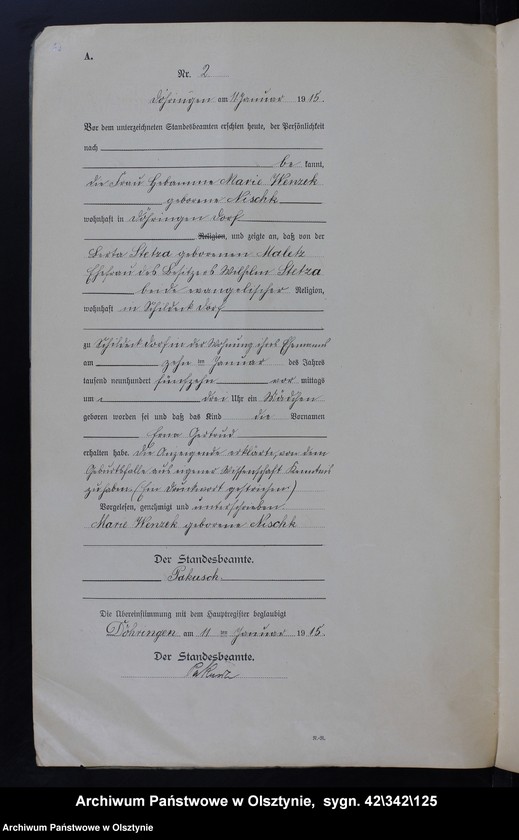 A.
Nr. 2
Döhringen am 11 Januar 1915.
Vor dem unterzeichneten Standesbeamten erschien heute, der Persönlichkeit
nach
be kannt,
die Frau Hebamme Marie Wenzek
geborene Nischk
wohnhaft in Döhringen Dorf
Religion, und zeigte an, daß von der
Berta Stetza geborenen Maletz
Ehefrau des Besitzers Wilhelm Stetza
beide evangelischer Religion,
wohnhaft in Schildeck Dorf
zu Schildeck Dorf in der Wohnung ihres Ehemanns
am zehn ten Januar des Jahres
tausend neunhundert fünfzehn vor mittags
um drei Uhr ein Mädchen
geboren worden sei und daß das Kind die Vornamen
Erna Gertrud
erhalten habe. Die Anzeigende erklärte, von dem
Geburtsfalle aus eigener Wissenschaft Kenntnis
zu haben. (Ein Druckwort gestrichen)
Vorgelesen, genehmigt und unterschrieben
Marie Wenzek geborene Nischk
Der Standesbeamte.
Pakusch
Die Übereinstimmung mit dem Hauptregister beglaubigt
Döhringen am 11 ten Januar 1915.
Der Standesbeamte.
Archiwum Państwowe w Olsztynie, sygn. 42\342\125
Archiwum Państwowe w Olsztynie